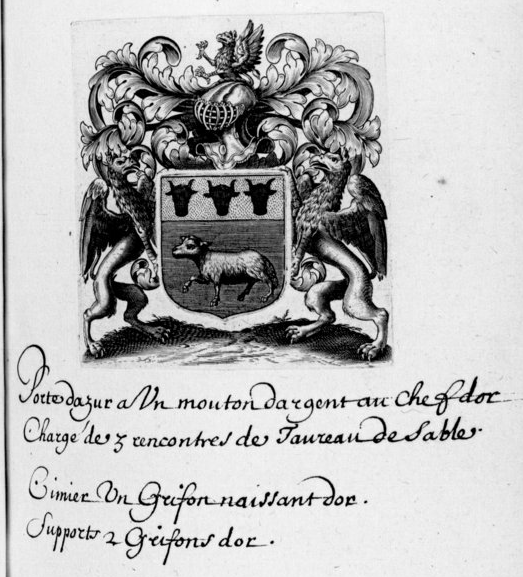 Porte dazur a Un mouton dargent au chef dor
Chargé de 3 rencontres de Taureau de Sable.
Cimier Un Grifon naissant dor.
Supports 2 Grifons dor.